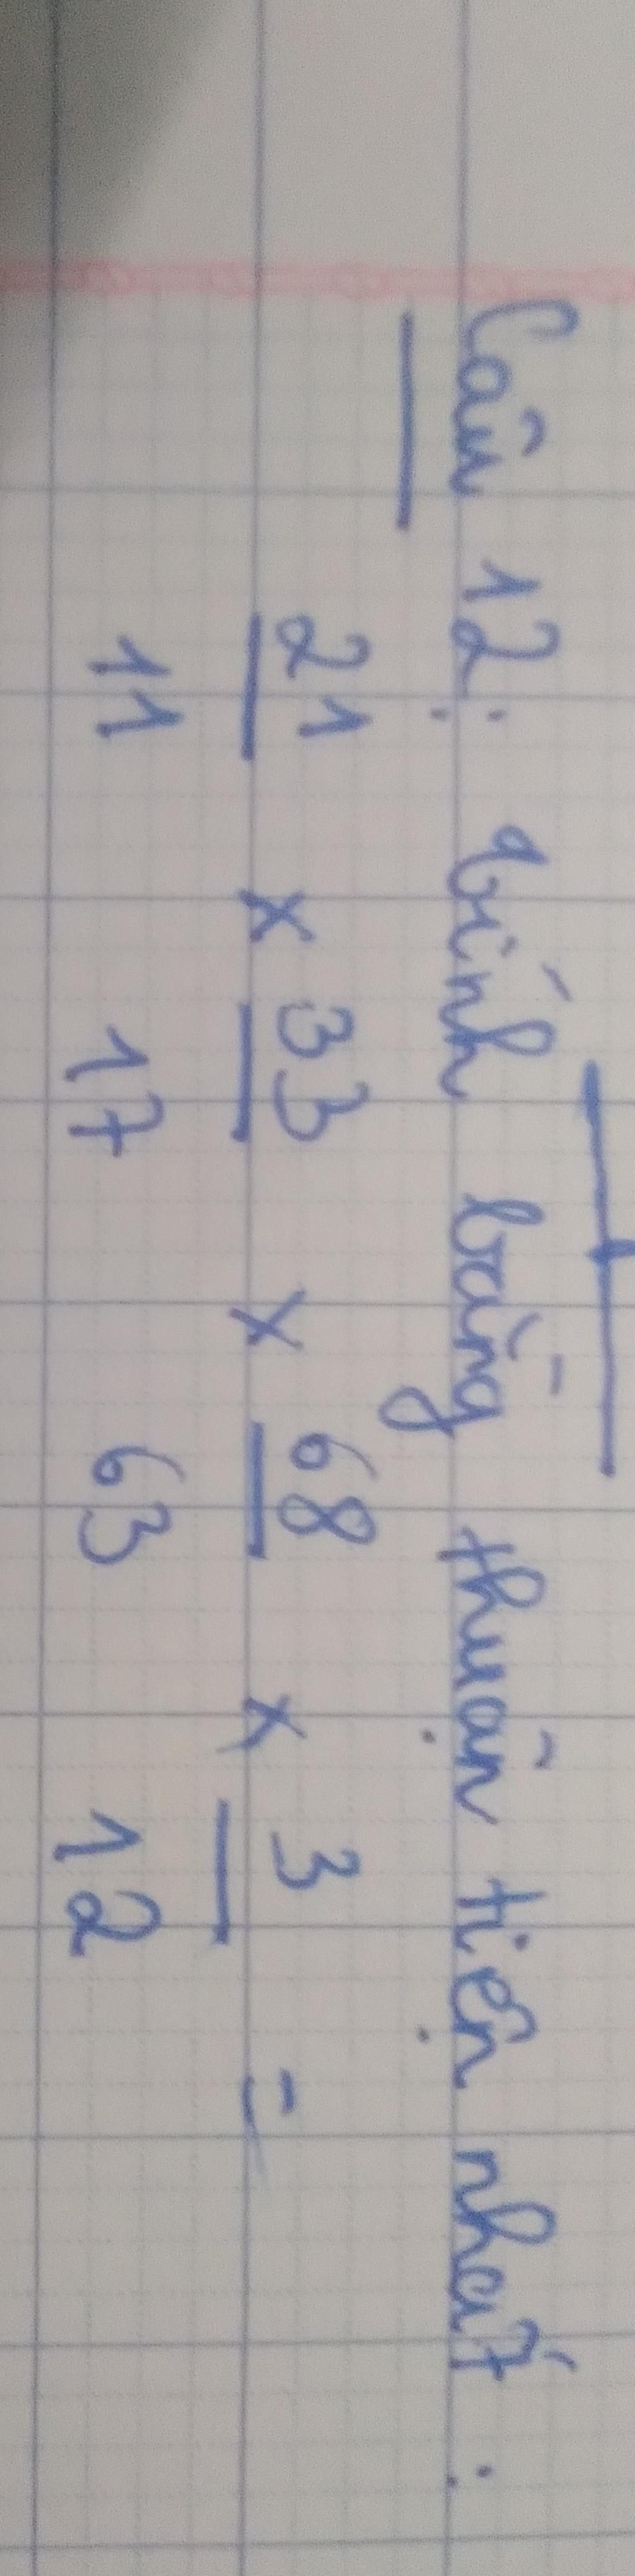 Câu 12: Tính bằng thuận tiện nhất :
21/11 x 33/17 x 68/63 x 3/12 =